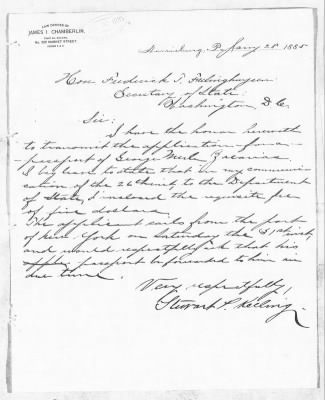 LAW OFFICES OF
JAMES I. CHAMBERLIN,
No. 222 MARKET STREET,
Harrisburg, Pa., Jany 28, 1885
Hon. Frederick T. Frelinghuysen
Secretary of State:
Washington D.C.
Sir:
I have the honor herewith
to transmit the application for a
passport of George Merle Zacarias.
I beg leave to state that in my communi-
cation of the 26th inst. to the Department
of State, I inclosed the requisite fee
of five dollars.
The applicant sails from the port
of New York on Saturday the 31st inst,
and would respectfully ask that his
passport be forwarded to him in
due time.
Very respectfully,
Stewart P. Keeling.